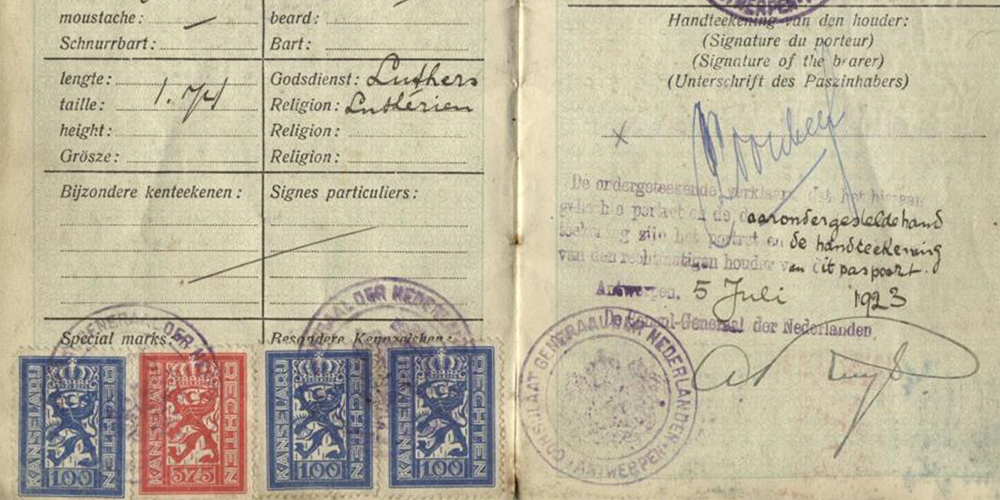 moustache:
Schnurrbart:
beard:
Bart:
lengte:
taille: 1.74
height:
Grösze:
Godsdienst: Luthers
Religion: Luthérien
Religion:
Religion:
Bijzondere kenteekenen:
Signes particuliers:
Special marks:
Besondere Kennzeichen:
KANSELARIJ RECHTEN 1.00
KANSELARIJ RECHTEN 3.75
KANSELARIJ RECHTEN 1.00
KANSELARIJ RECHTEN 1.00
ANTWERPEN
Handteekening van den houder:
(Signature du porteur)
(Signature of the bearer)
(Unterschrift des Paszinhabers)
x
De ondergeteekende verklaart dat het hieraan
gehechte portret en de daaronder gestelde hand
teekening zijn het portret en de handteekening
van den rechtmatigen houder van dit paspoort.
Antwerpen, 5 Juli 1923
De Consul-Generaal der Nederlanden
CONSULAAT GENERAAL DER NEDERLANDEN ANTWERPEN